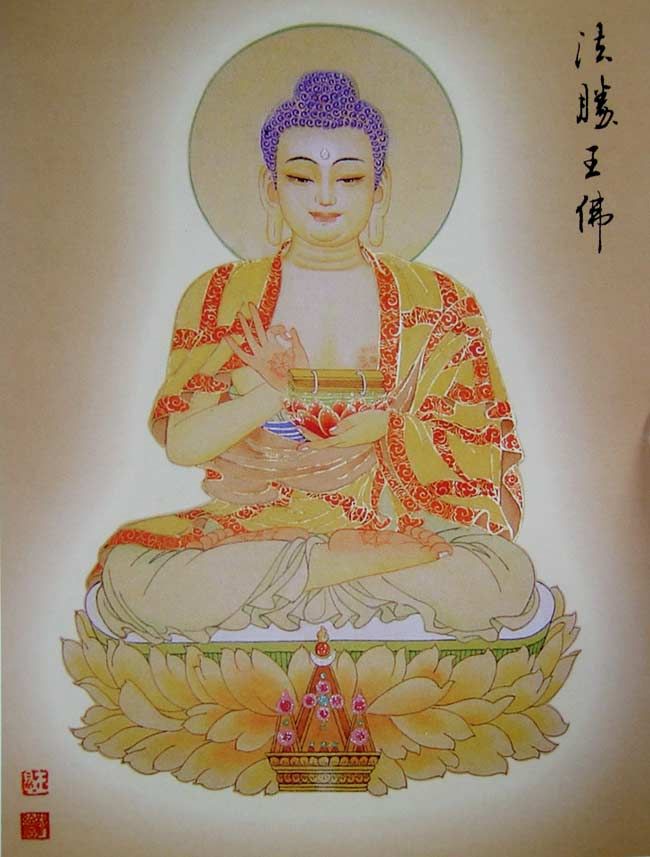 法勝王佛